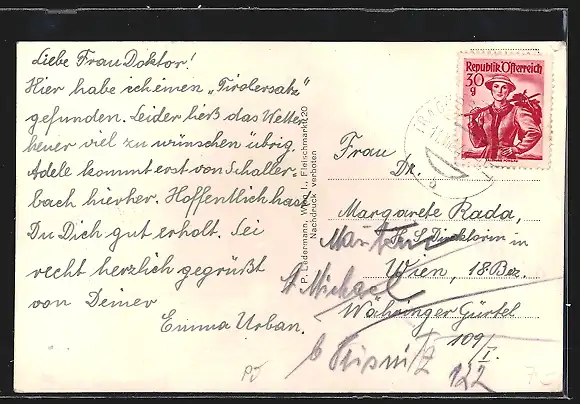 Liebe Frau Doktor!
Hier habe ich einen „Tirolersatz"
gefunden. Leider ließ das Wetter
heuer viel zu wünschen übrig.
Adele kommt erst von Schaller-
bach hierher. Hoffentlich hast
Du Dich gut erholt. Sei
recht herzlich gegrüßt
von Deiner
Emma Urban.
P. Ledermann, Wien I., Fleischmarkt 20
Nachdruck verboten
Republik Österreich
30
g
Frau
Dr.
Margarete Rada,
H. S. Direktorin in
Wien, 18. Bez.
Währinger Gürtel
109/I.
St. Michael
122